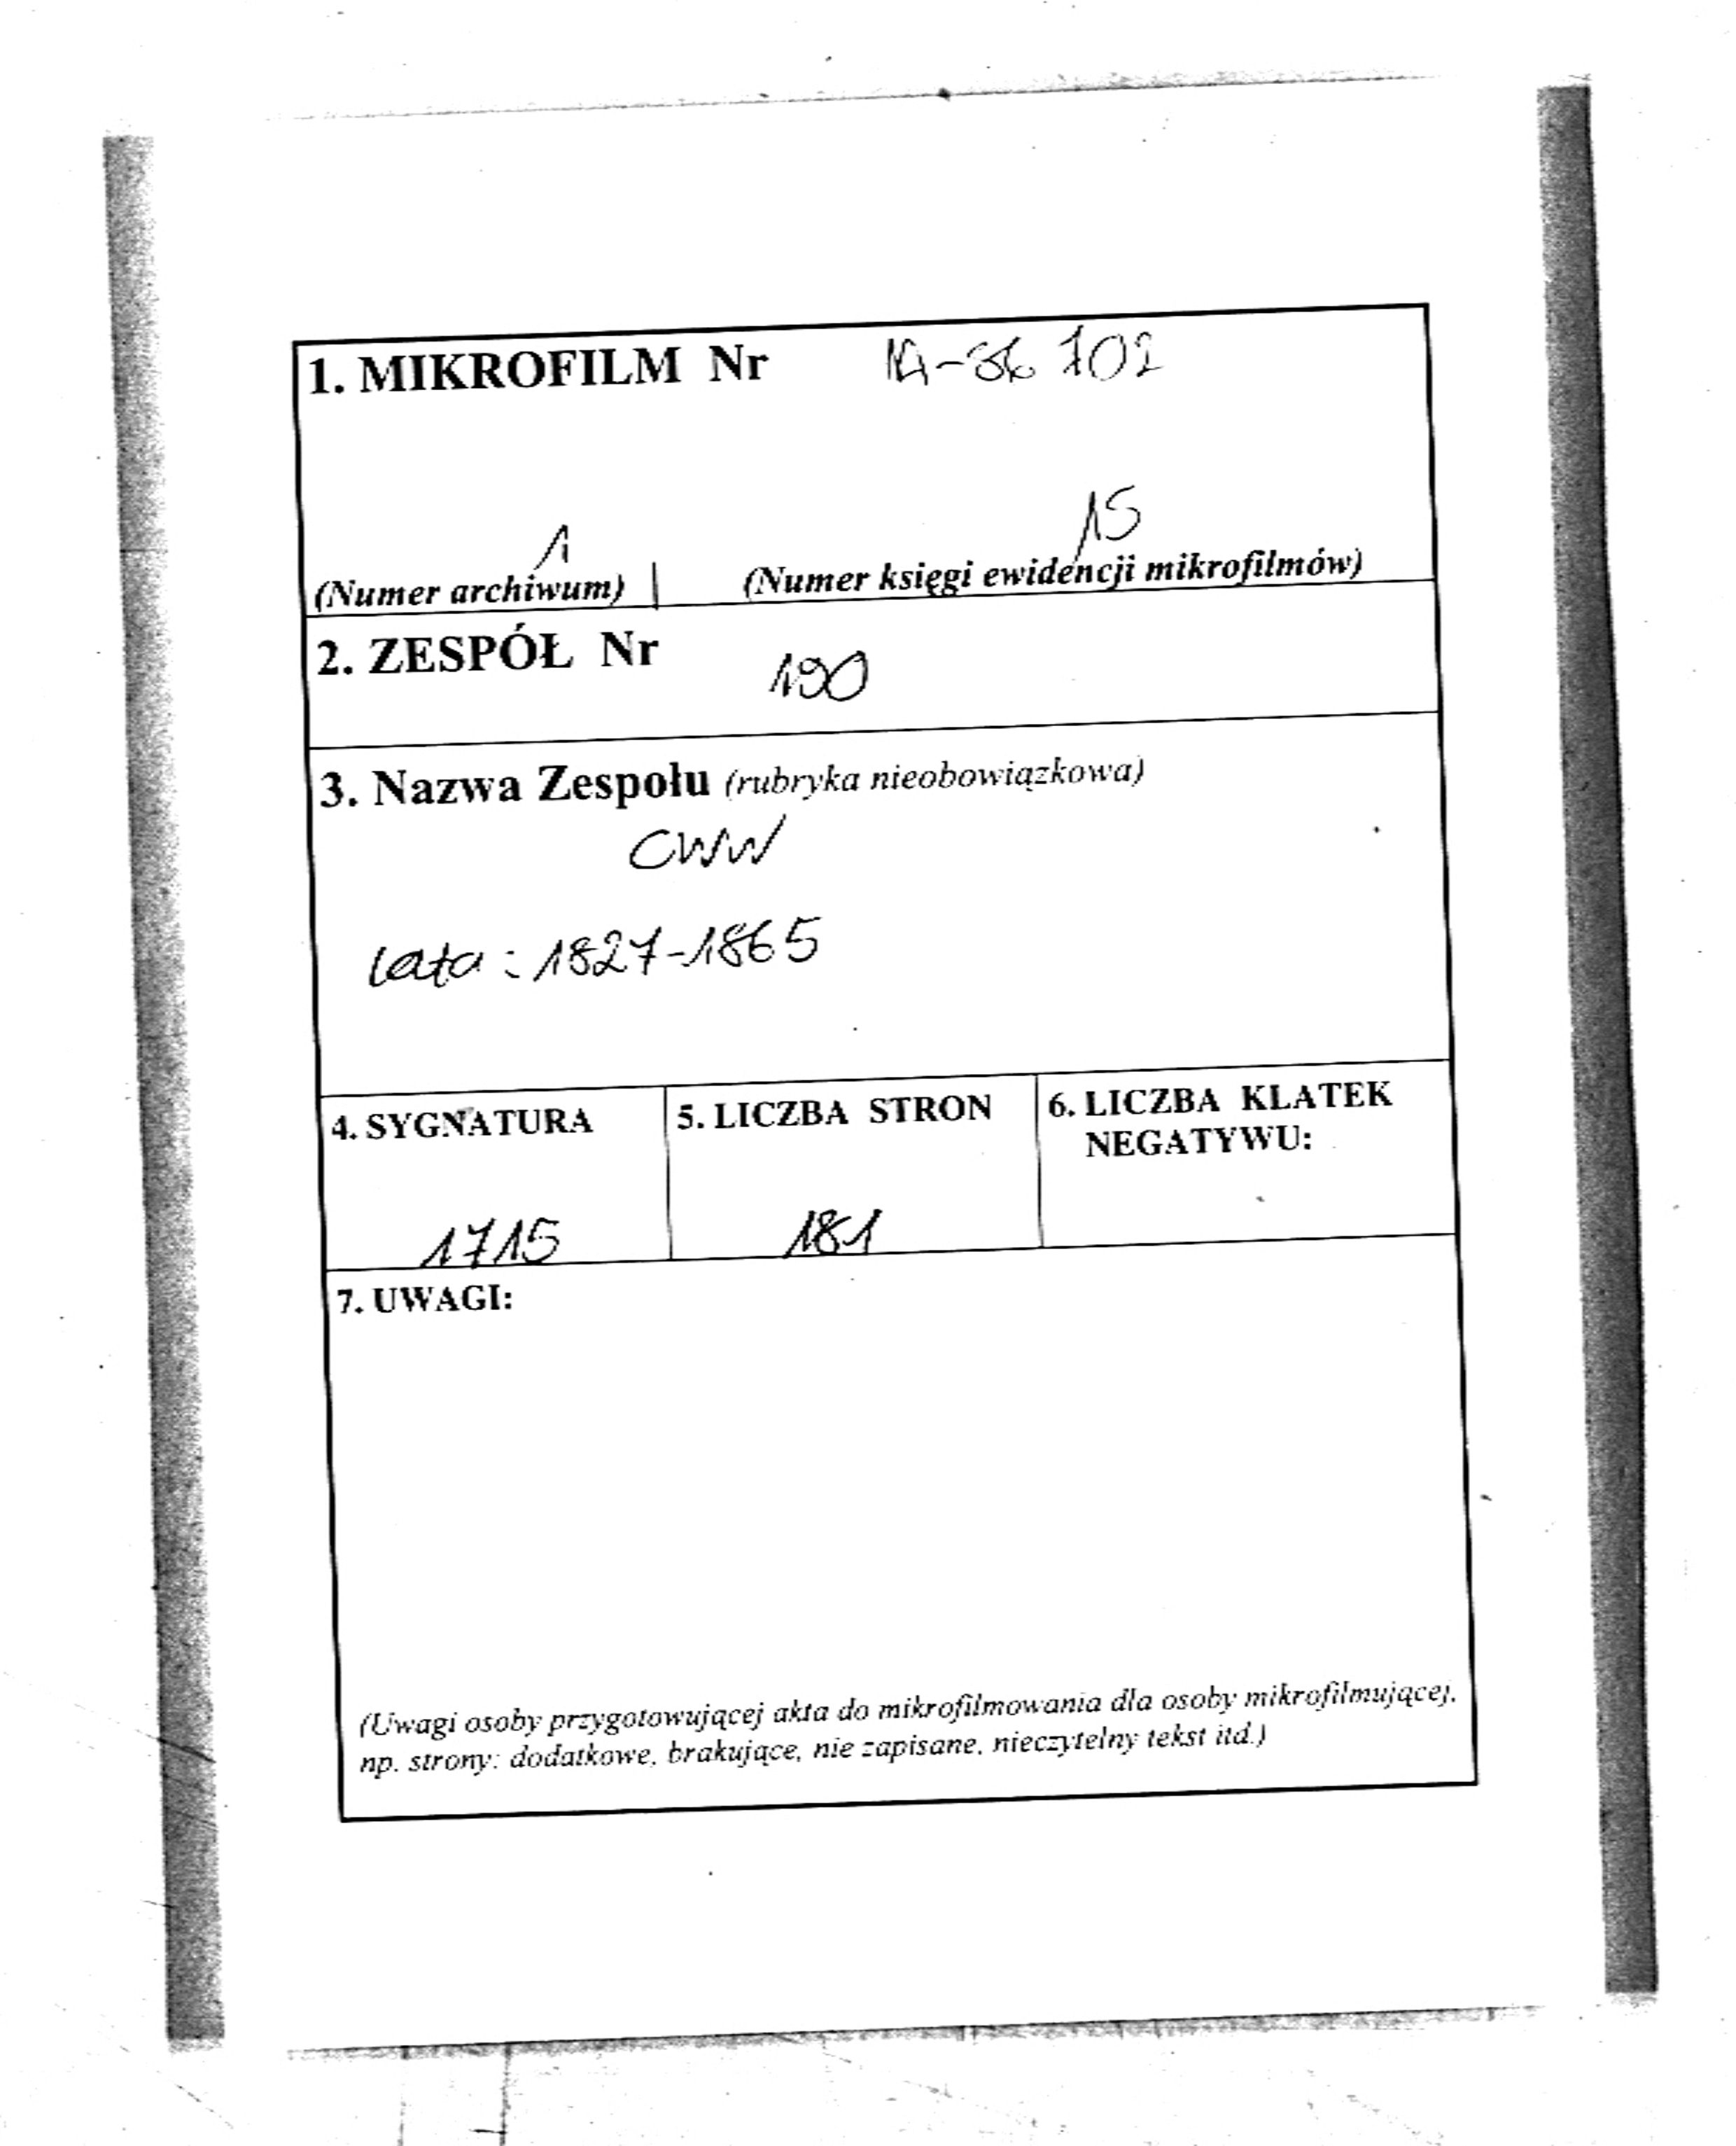 1. MIKROFILM Nr 702
1 15
(Numer archiwum) | (Numer księgi ewidencji mikrofilmów)
2. ZESPÓŁ Nr 190
3. Nazwa Zespołu (rubryka nieobowiązkowa)
CWW
lata : 1827-1865
4. SYGNATURA 5. LICZBA STRON 6. LICZBA KLATEK
NEGATYWU:
1715 181
7. UWAGI:
(Uwagi osoby przygotowującej akta do mikrofilmowania dla osoby mikrofilmującej,
np. strony: dodatkowe, brakujące, nie zapisane, nieczytelny tekst itd.)